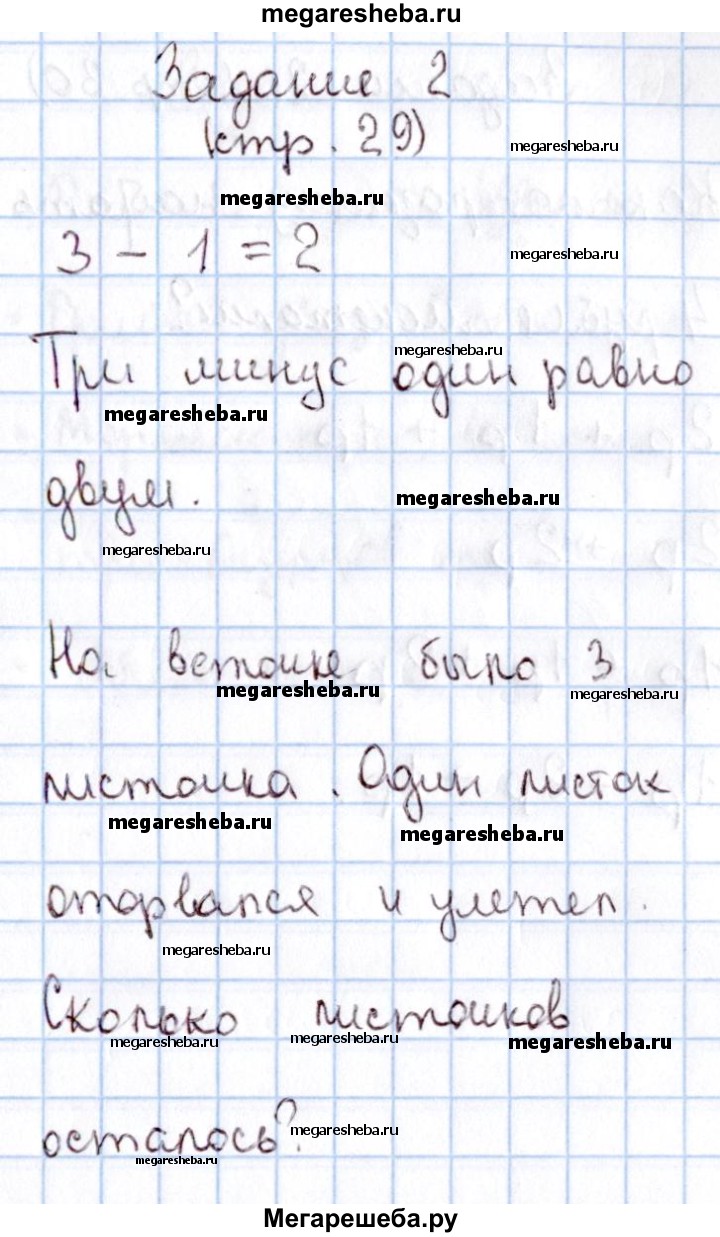 megaresheba.ru
Задание 2
(стр. 29)
megaresheba.ru
megaresheba.ru
3 - 1 = 2
megaresheba.ru
Три минус один равно
megaresheba.ru
megaresheba.ru
двум.
megaresheba.ru
megaresheba.ru
На веточке было 3
megaresheba.ru
megaresheba.ru
листочка. Один листок
megaresheba.ru
megaresheba.ru
оторвался и улетел.
megaresheba.ru
Сколько листочков
megaresheba.ru
megaresheba.ru
megaresheba.ru
осталось?
megaresheba.ru
megaresheba.ru
Мегарешеба.ру